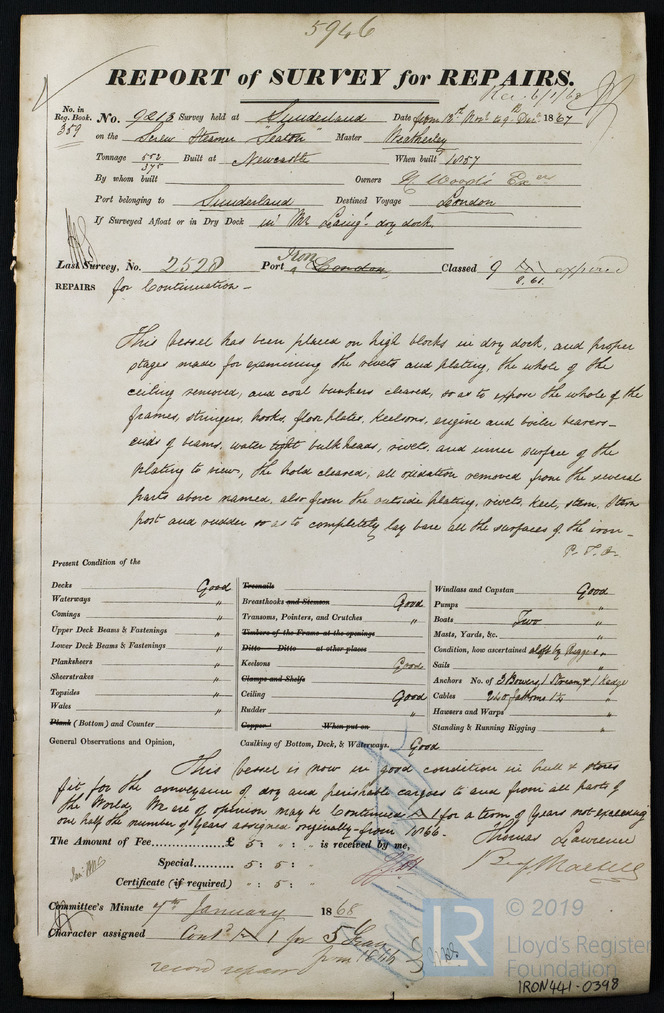 5946
REPORT of SURVEY for REPAIRS.
Rec. 6/1/68
No. in Reg. Book. 359
No. 9213 Survey held at Sunderland Date, from 12th Novr to 29th Decr 1867
on the Screw Steamer "Seaton" Master Weatherley
Tonnage 552 / 375 Built at Newcastle When built 1857
By whom built Owners Woods Exers
Port belonging to Sunderland Destined Voyage London
If Surveyed Afloat or in Dry Dock in Mr Laing's dry dock
Last Survey, No. 2528 Port Iron London Classed 9 A1 expired
8.61.
REPAIRS for Continuation -
This vessel has been placed on high blocks in dry dock, and proper
stages made for examining the rivets and plating, the whole of the
ceiling removed, and coal bunkers cleared, so as to expose the whole of the
frames, stringers, hooks, floor plates, keelsons, engine and boiler bearers -
ends of beams, water tight bulkheads, rivets, and inner surface of the
plating to view, the hold cleared, all oxidation removed from the several
parts above named, also from the outside plating, rivets, keel, stem, stern
post and rudder so as to completely lay bare all the surfaces of the iron -
P.T.O.
Present Condition of the
Decks Good
Waterways "
Comings "
Upper Deck Beams & Fastenings "
Lower Deck Beams & Fastenings "
Planksheers "
Sheerstrakes "
Topsides "
Wales "
Plank (Bottom) and Counter
Treenails
Breasthooks and Stemson Good
Transoms, Pointers, and Crutches "
Timbers of the Frame at the openings
Ditto Ditto at other places
Keelsons Good
Clamps and Shelfs
Ceiling Good
Rudder "
Copper When put on
Windlass and Capstan Good
Pumps "
Boats Two "
Masts, Yards, &c. "
Condition, how ascertained aloft by Riggers "
Sails "
Anchors No. of 3 Bowers, 1 Stream, & 1 Kedge
Cables 240 fathoms 1 1/4 "
Hawsers and Warps "
Standing & Running Rigging "
General Observations and Opinion, Caulking of Bottom, Deck, & Waterways. Good
This vessel is now in good condition in hull & stores
fit for the conveyance of dry and perishable cargoes to and from all parts of
the World, We are of opinion may be Continued A 1 for a term of years not exceeding
one half the number of years assigned originally from 1866 -
The Amount of Fee £ 5 : " : " is received by me, Thomas Lawrence
Special 5 : 5 :
Certificate (if required) " : 5 :
Committee's Minute 7th January 1868
Character assigned Contd A 1 for 5 Years
from 1866
record repairs
© 2019
LR
Lloyd's Register
Foundation
IRON441-0398